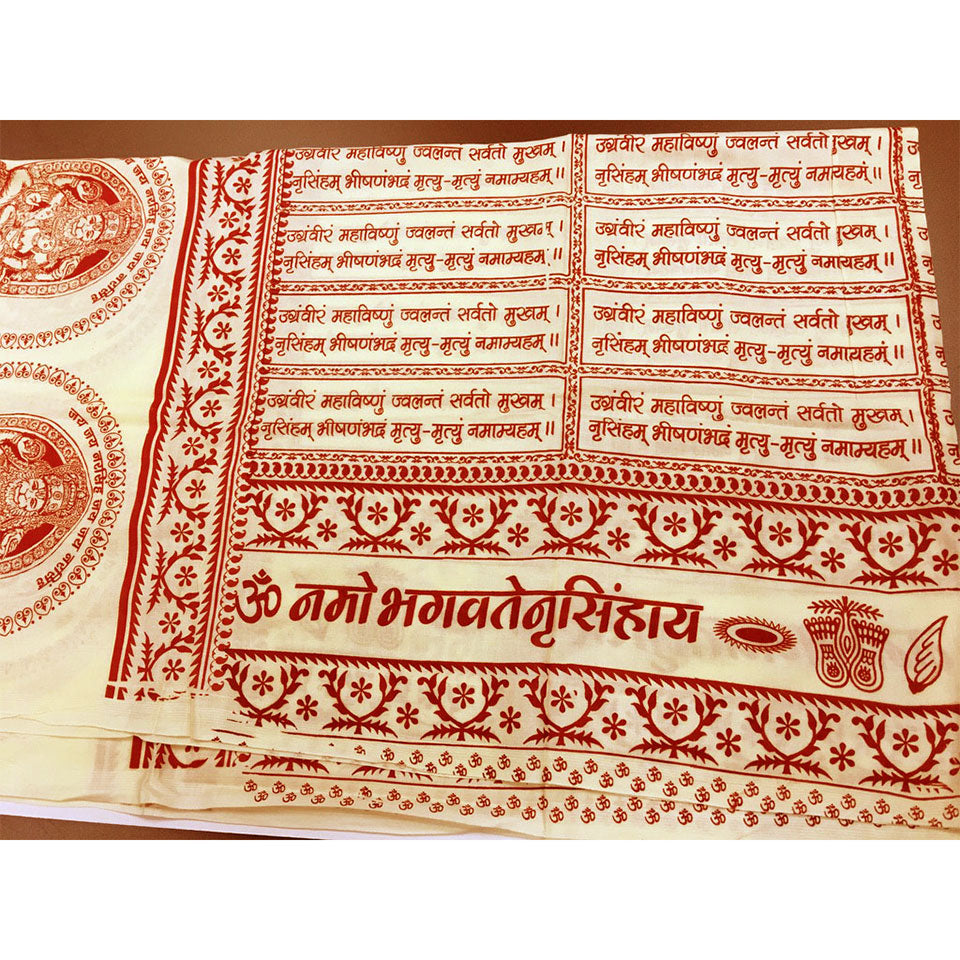 उग्रवीरं महाविष्णुं ज्वलन्तं सर्वतो मुखम् ।
नृसिंहम् भीषणंभद्रं मृत्यु-मृत्युं नमाम्यहम् ॥
उग्रवीरं महाविष्णुं ज्वलन्तं सर्वतो मुखम् ।
नृसिंहम् भीषणंभद्रं मृत्यु-मृत्युं नमाम्यहम् ॥
उग्रंवीरं महाविष्णुं ज्वलन्तं सर्वतो मुखम् ।
नृसिंहम् भीषणंभद्रं मृत्यु-मृत्युं नमाम्यहम् ॥
उग्रंवीरं महाविष्णुं ज्वलन्तं सर्वतो मुखम् ।
नृसिंहम् भीषणंभद्रं मृत्यु-मृत्युं नमाम्यहम् ॥
उग्रंवीरं महाविष्णुं ज्वलन्तं सर्वतो मुखम् ।
नृसिंहम् भीषणंभद्रं मृत्यु-मृत्युं नमाम्यहम् ॥
उग्रंवीरं महाविष्णुं ज्वलन्तं सर्वतो मुखम् ।
नृसिंहम् भीषणंभद्रं मृत्यु-मृत्युं नमाम्यहम् ॥
उग्रंवीरं महाविष्णुं ज्वलन्तं सर्वतो मुखम् ।
नृसिंहम् भीषणंभद्रं मृत्यु-मृत्युं नमाम्यहम् ॥
उग्रंवीरं महाविष्णुं ज्वलन्तं सर्वतो मुखम् ।
नृसिंहम् भीषणंभद्रं मृत्यु-मृत्युं नमाम्यहम् ॥
ॐ नमो भगवतेनृसिंहाय
जय जय नरसिंह